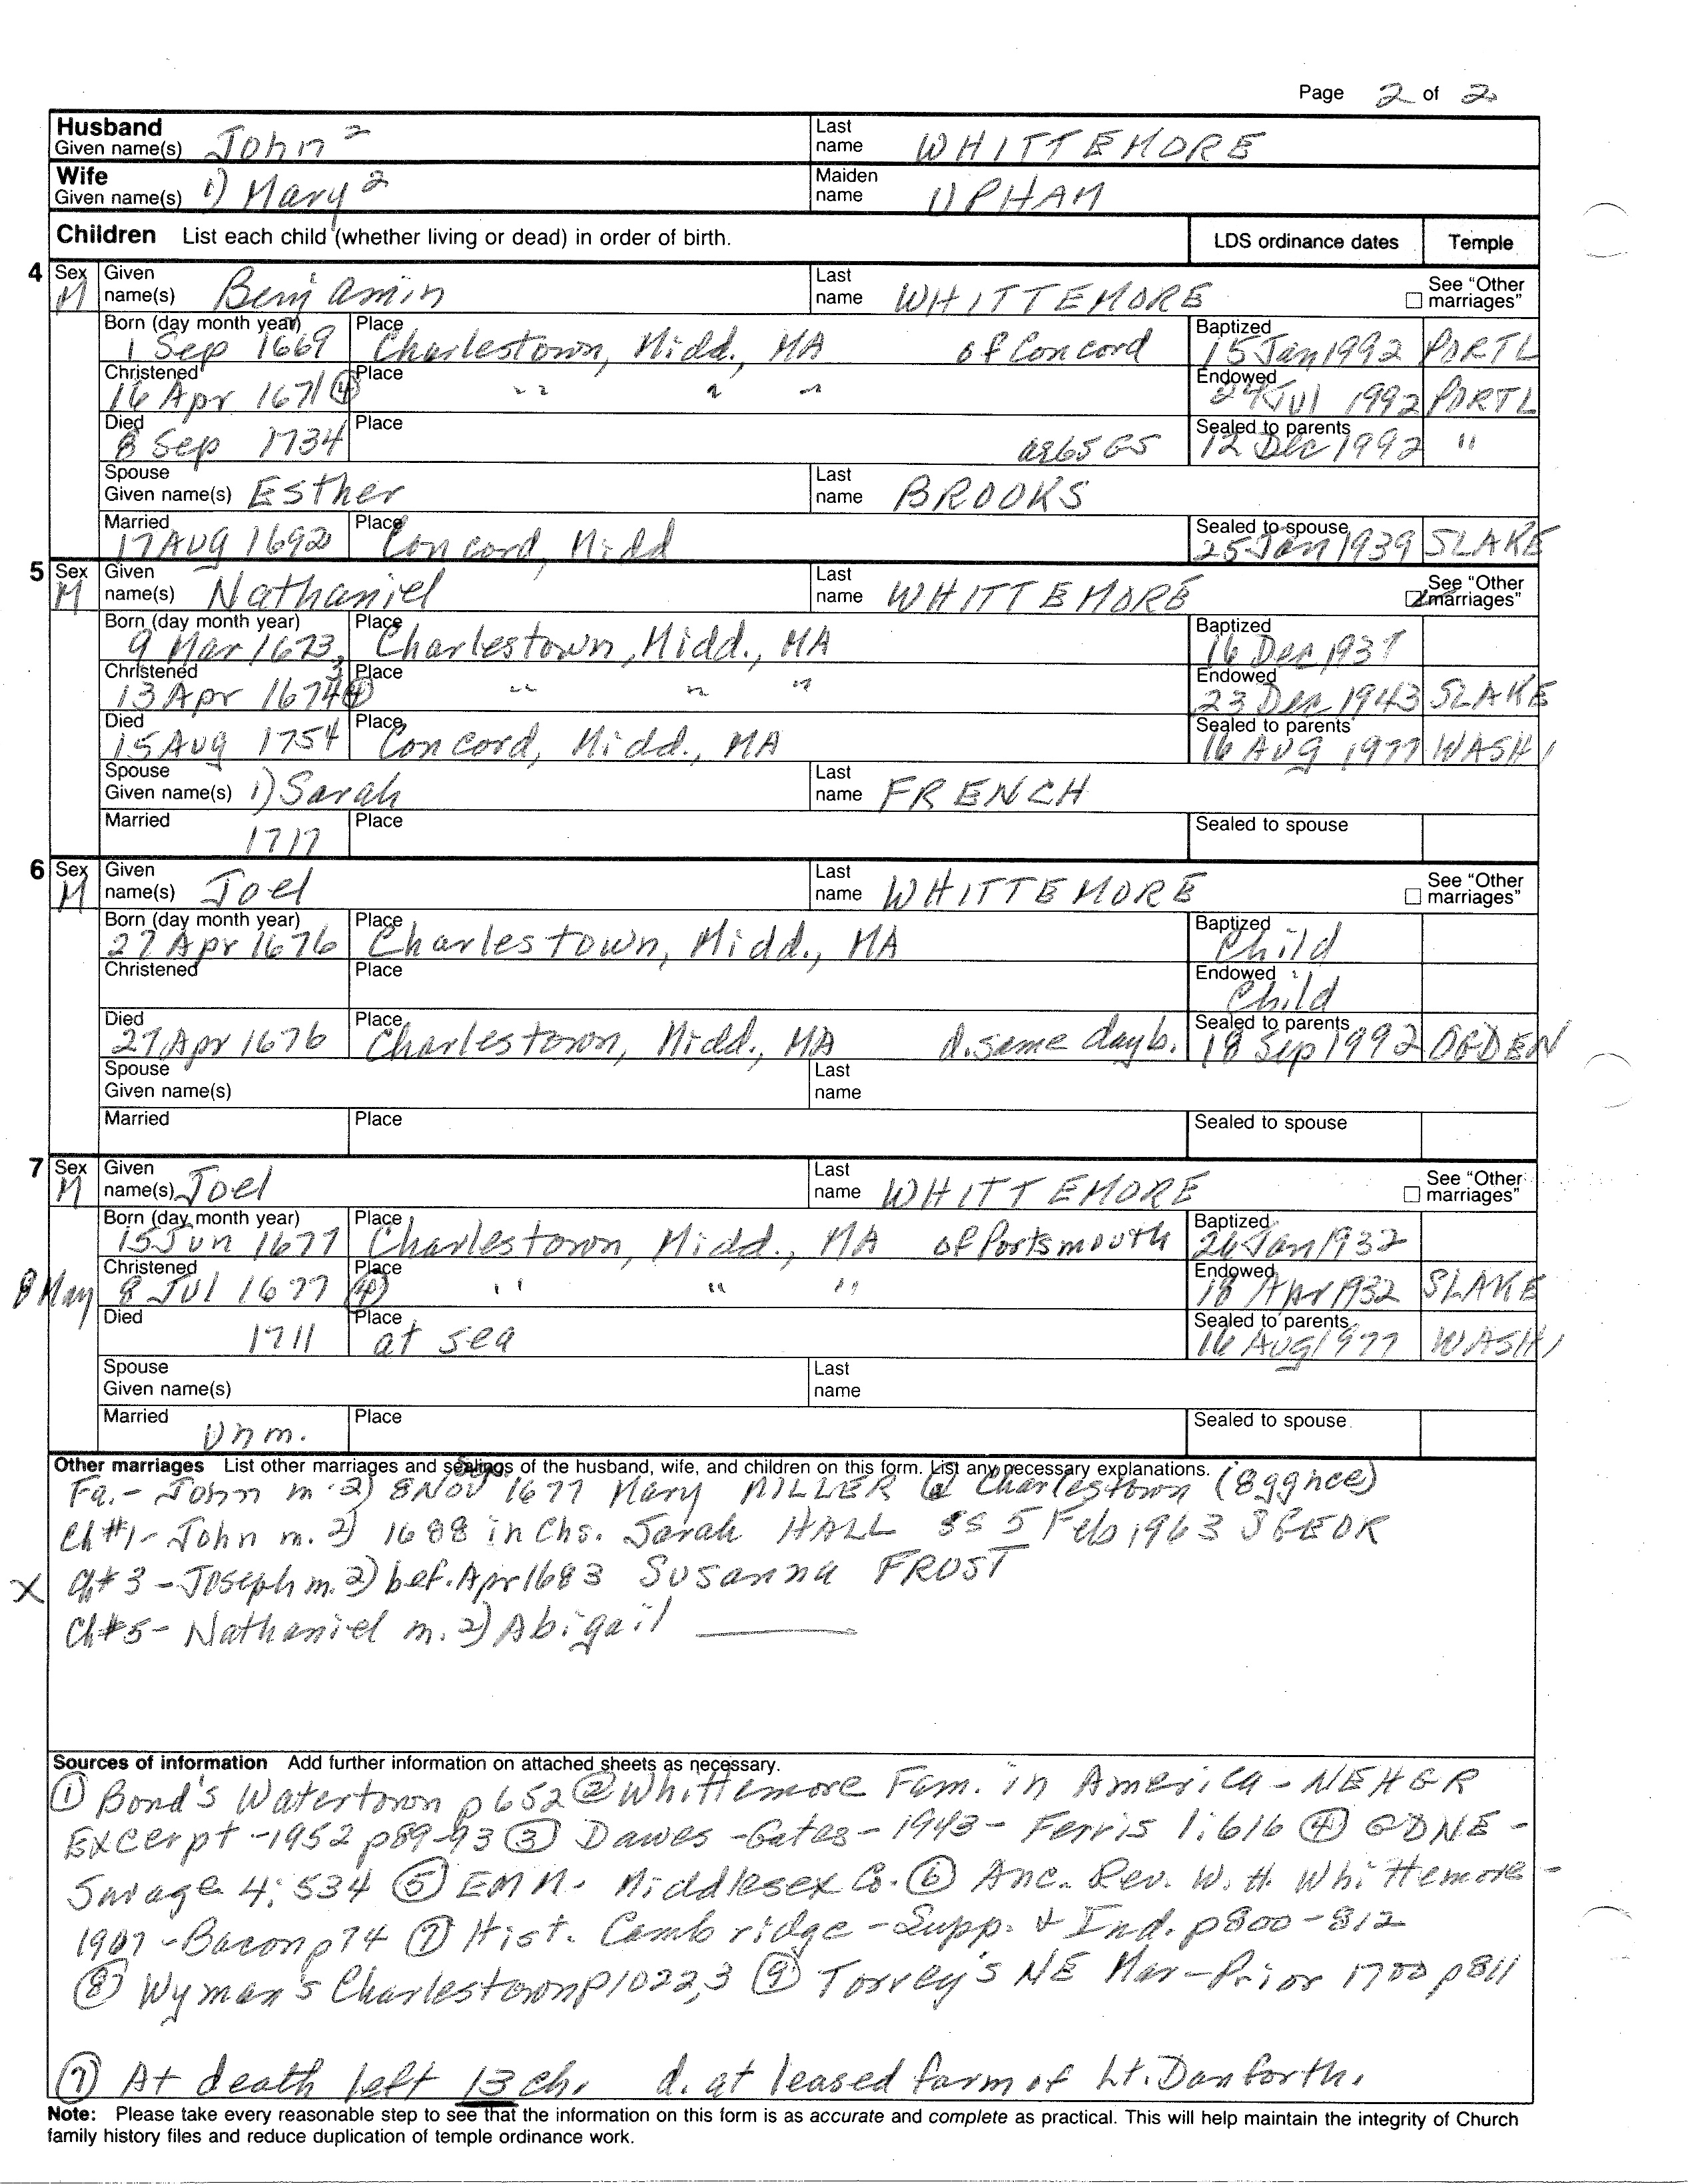 Page 2 of 2
Husband Given name(s) John² Last name WHITTEMORE
Wife Given name(s) 1) Mary² Maiden name UPHAM
Children List each child (whether living or dead) in order of birth. LDS ordinance dates Temple
4 Sex M Given name(s) Benjamin Last name WHITTEMORE See "Other marriages"
Born (day month year) 1 Sep 1669 Place Charlestown, Midd., MA of Concord Baptized 15 Jan 1992 PORTL
Christened 16 Apr 1671 ④ Place " " " " Endowed 24 Jul 1992 PORTL
Died 8 Sep 1734 Place Sealed to parents 12 Dec 1992 "
Spouse Given name(s) Esther Last name BROOKS
Married 17 AUG 1692 Place Concord, Midd Sealed to spouse 25 Jan 1939 SLAKE
5 Sex M Given name(s) Nathaniel Last name WHITTEMORE See "Other marriages"
Born (day month year) 9 Mar 1673 Place Charlestown, Midd., MA Baptized 16 Dec 1937
Christened 13 Apr 1674 ④ Place " " " Endowed 23 Dec 1943 SLAKE
Died 15 Aug 1754 Place Concord, Midd., MA Sealed to parents 16 AUG 1977 WASH
Spouse Given name(s) 1) Sarah Last name FRENCH
Married 1717 Place Sealed to spouse
6 Sex M Given name(s) Joel Last name WHITTEMORE See "Other marriages"
Born (day month year) 27 Apr 1676 Place Charlestown, Midd., MA Baptized Child
Christened Place Endowed Child
Died 27 Apr 1676 Place Charlestown, Midd., MA d. same day b. Sealed to parents 18 Sep 1992 OGDEN
Spouse Given name(s) Last name
Married Place Sealed to spouse
7 Sex M Given name(s) Joel Last name WHITTEMORE See "Other marriages"
Born (day month year) 15 Jun 1677 Place Charlestown, Midd., MA of Portsmouth Baptized 26 Jan 1932
8 May Christened 8 Jul 1677 ④ Place " " " Endowed 18 Apr 1932 SLAKE
Died 1711 Place at sea Sealed to parents 16 Aug 1977 WASH
Spouse Given name(s) Last name
Married Unm. Place Sealed to spouse
Other marriages List other marriages and sealings of the husband, wife, and children on this form. List any necessary explanations.
Fa. - John m. 2) 8 Nov 1677 Mary MILLER @ Charlestown
Ch #1 - John m. 2) 1688 in Chs. Sarah HALL SS 5 Feb 1963 SGEOR
X Ch #3 - Joseph m. 2) bef. Apr 1683 Susanna FROST
Ch #5 - Nathaniel m. 2) Abigail ______
Sources of information Add further information on attached sheets as necessary.
① Bond's Watertown p652 ② Whittemore Fam. in America - NEHGR
Excerpt - 1952 p89-93 ③ Dawes - Gates - 1943 - Ferris 1:616 ④ GDNE -
Savage 4:534 ⑤ EMM. Middlesex Co. ⑥ Anc. Rev. W. H. Whittemore -
1907 - Bacon p74 ⑦ Hist. Cambridge - Supp. & Ind. p800-812
⑧ Wyman's Charlestown p1022,3 ⑨ Torrey's NE Mar - Prior 1700 p811
⑦ At death left 13 ch. d. at leased farm of Lt. Danforth.
Note: Please take every reasonable step to see that the information on this form is as accurate and complete as practical. This will help maintain the integrity of Church
family history files and reduce duplication of temple ordinance work.